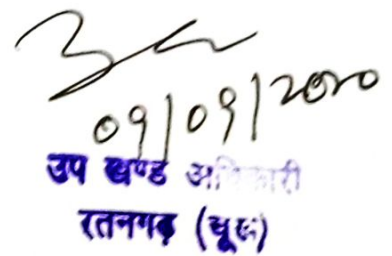 09/09/2020
उप खण्ड अधिकारी
रतनगढ़ (चूरू)